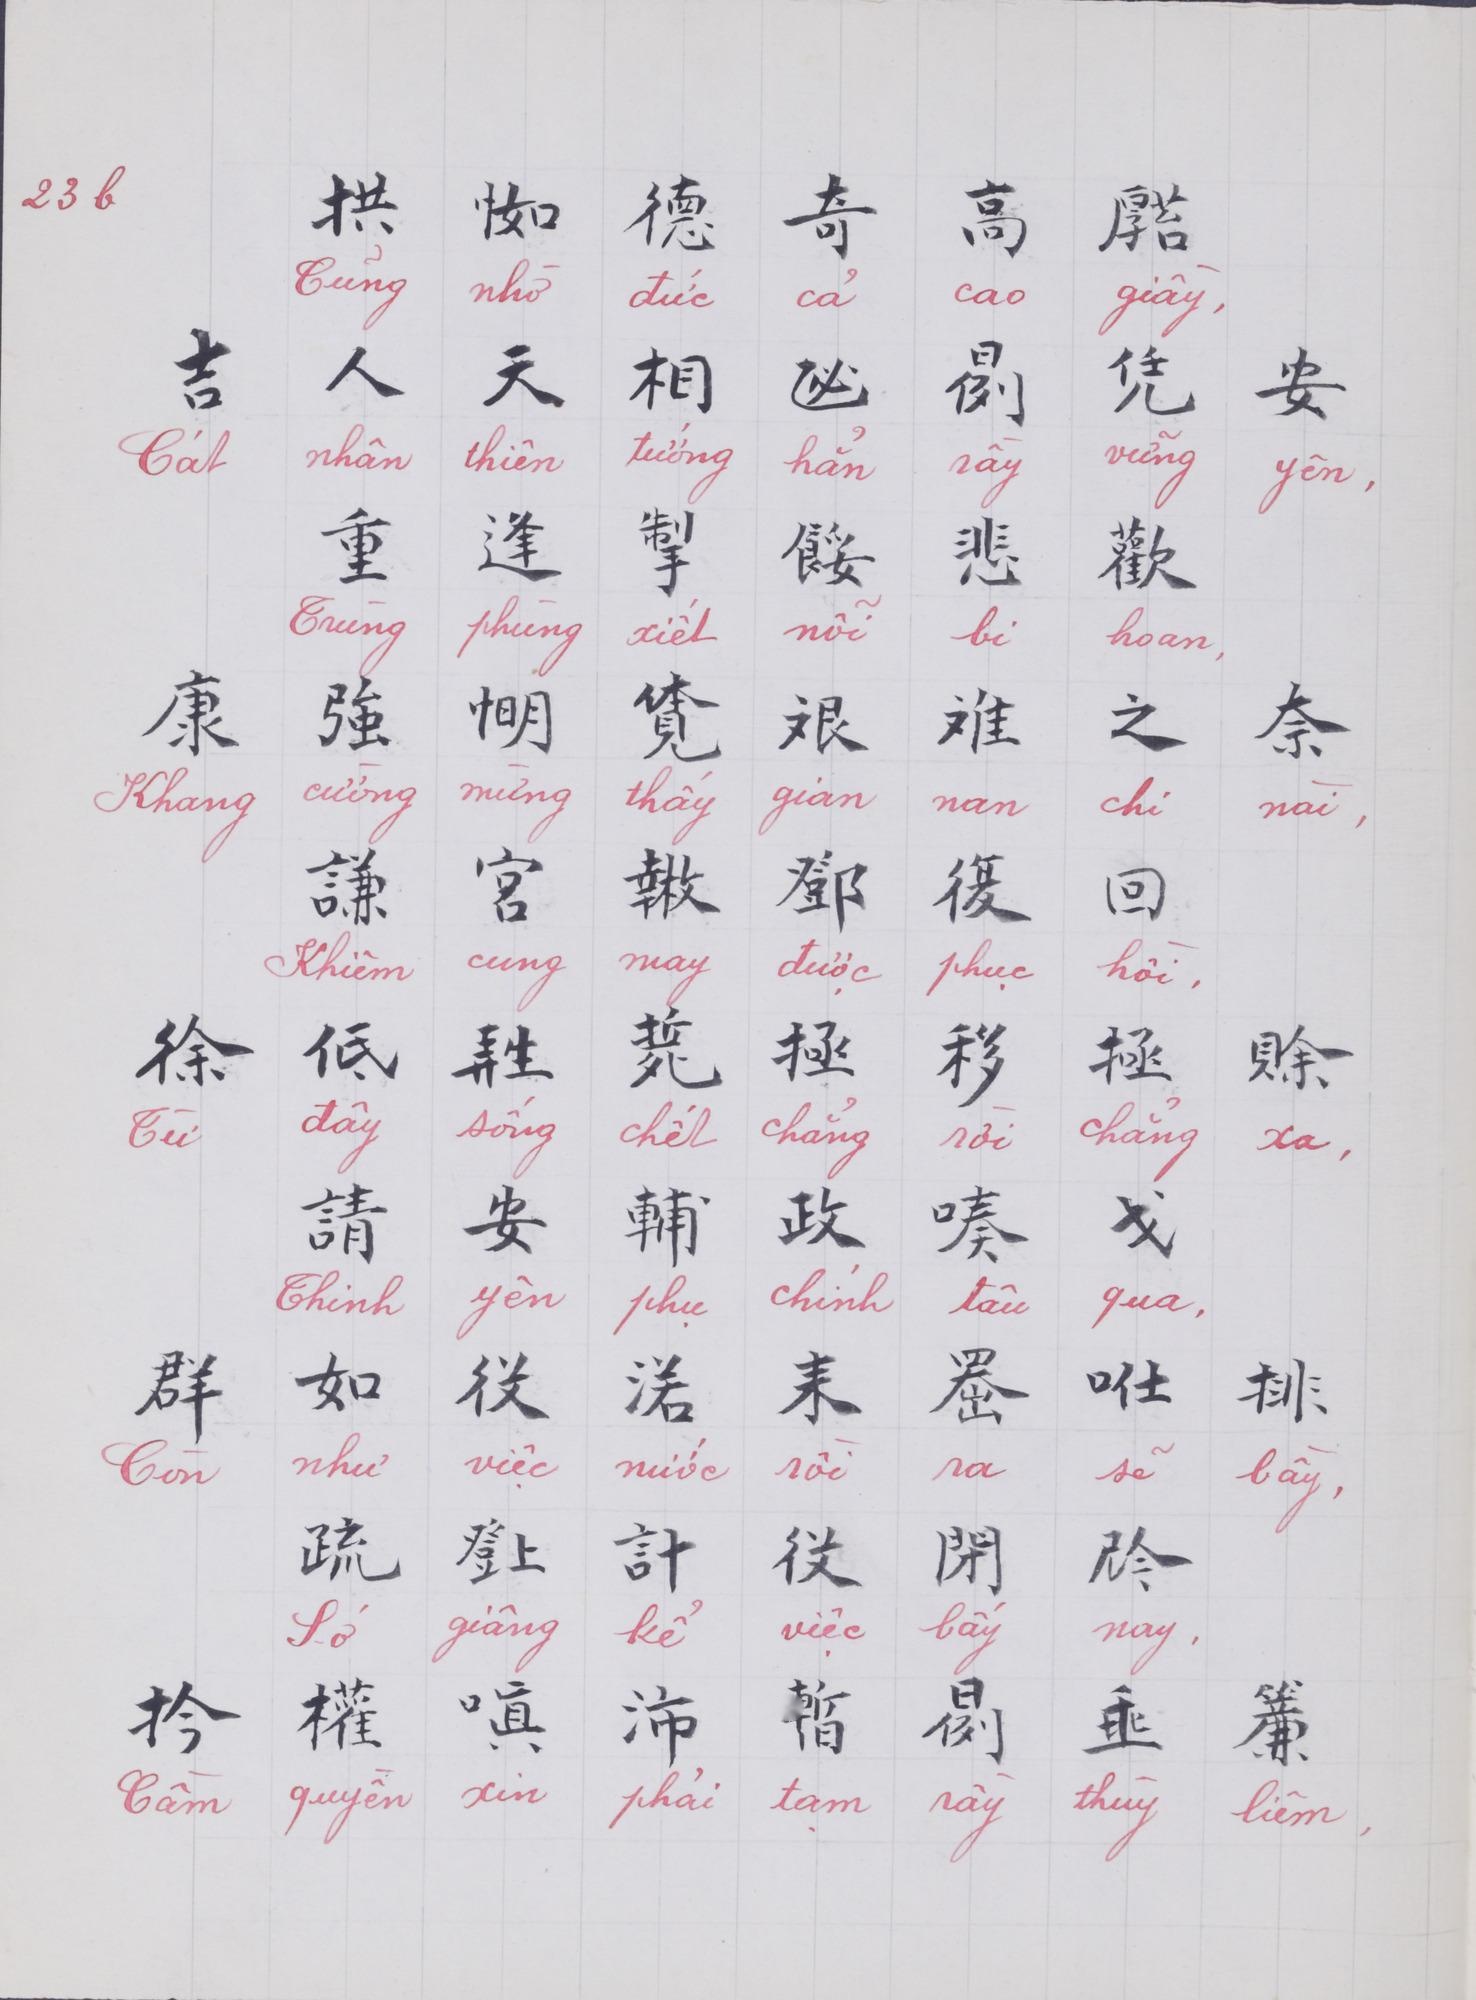 23 b
拱 㤇 德 奇 高
Củng nhờ đức cả cao giầy,
吉 人 天 相 凭 安
Cát nhân thiên tướng hẳn rầy vững yên,
重 逢 掣 餒 悲 歡
Trùng phùng xiết nỗi bi hoan,
康 強 𢜏 艱 难 之 奈
Khang cường mừng thấy gian nan chi nài,
謙 宮 鄧 復 回
Khiêm cung may được phục hồi,
徐 低 極 移 極 賒
Từ đây sống chết chẳng rời chẳng xa,
請 安 輔 政 嗪 戈
Thỉnh yên phụ chính tâu qua,
群 如 役 渃 耒 𦋦 𠰺 排
Còn như việc nước rồi ra sẽ bầy,
疏 計 役 閉
Sớ giâng kể việc bấy nay,
扲 權 嗔 沛 暫 垂 簾
Cầm quyền xin phải tạm rầy thùy liêm,